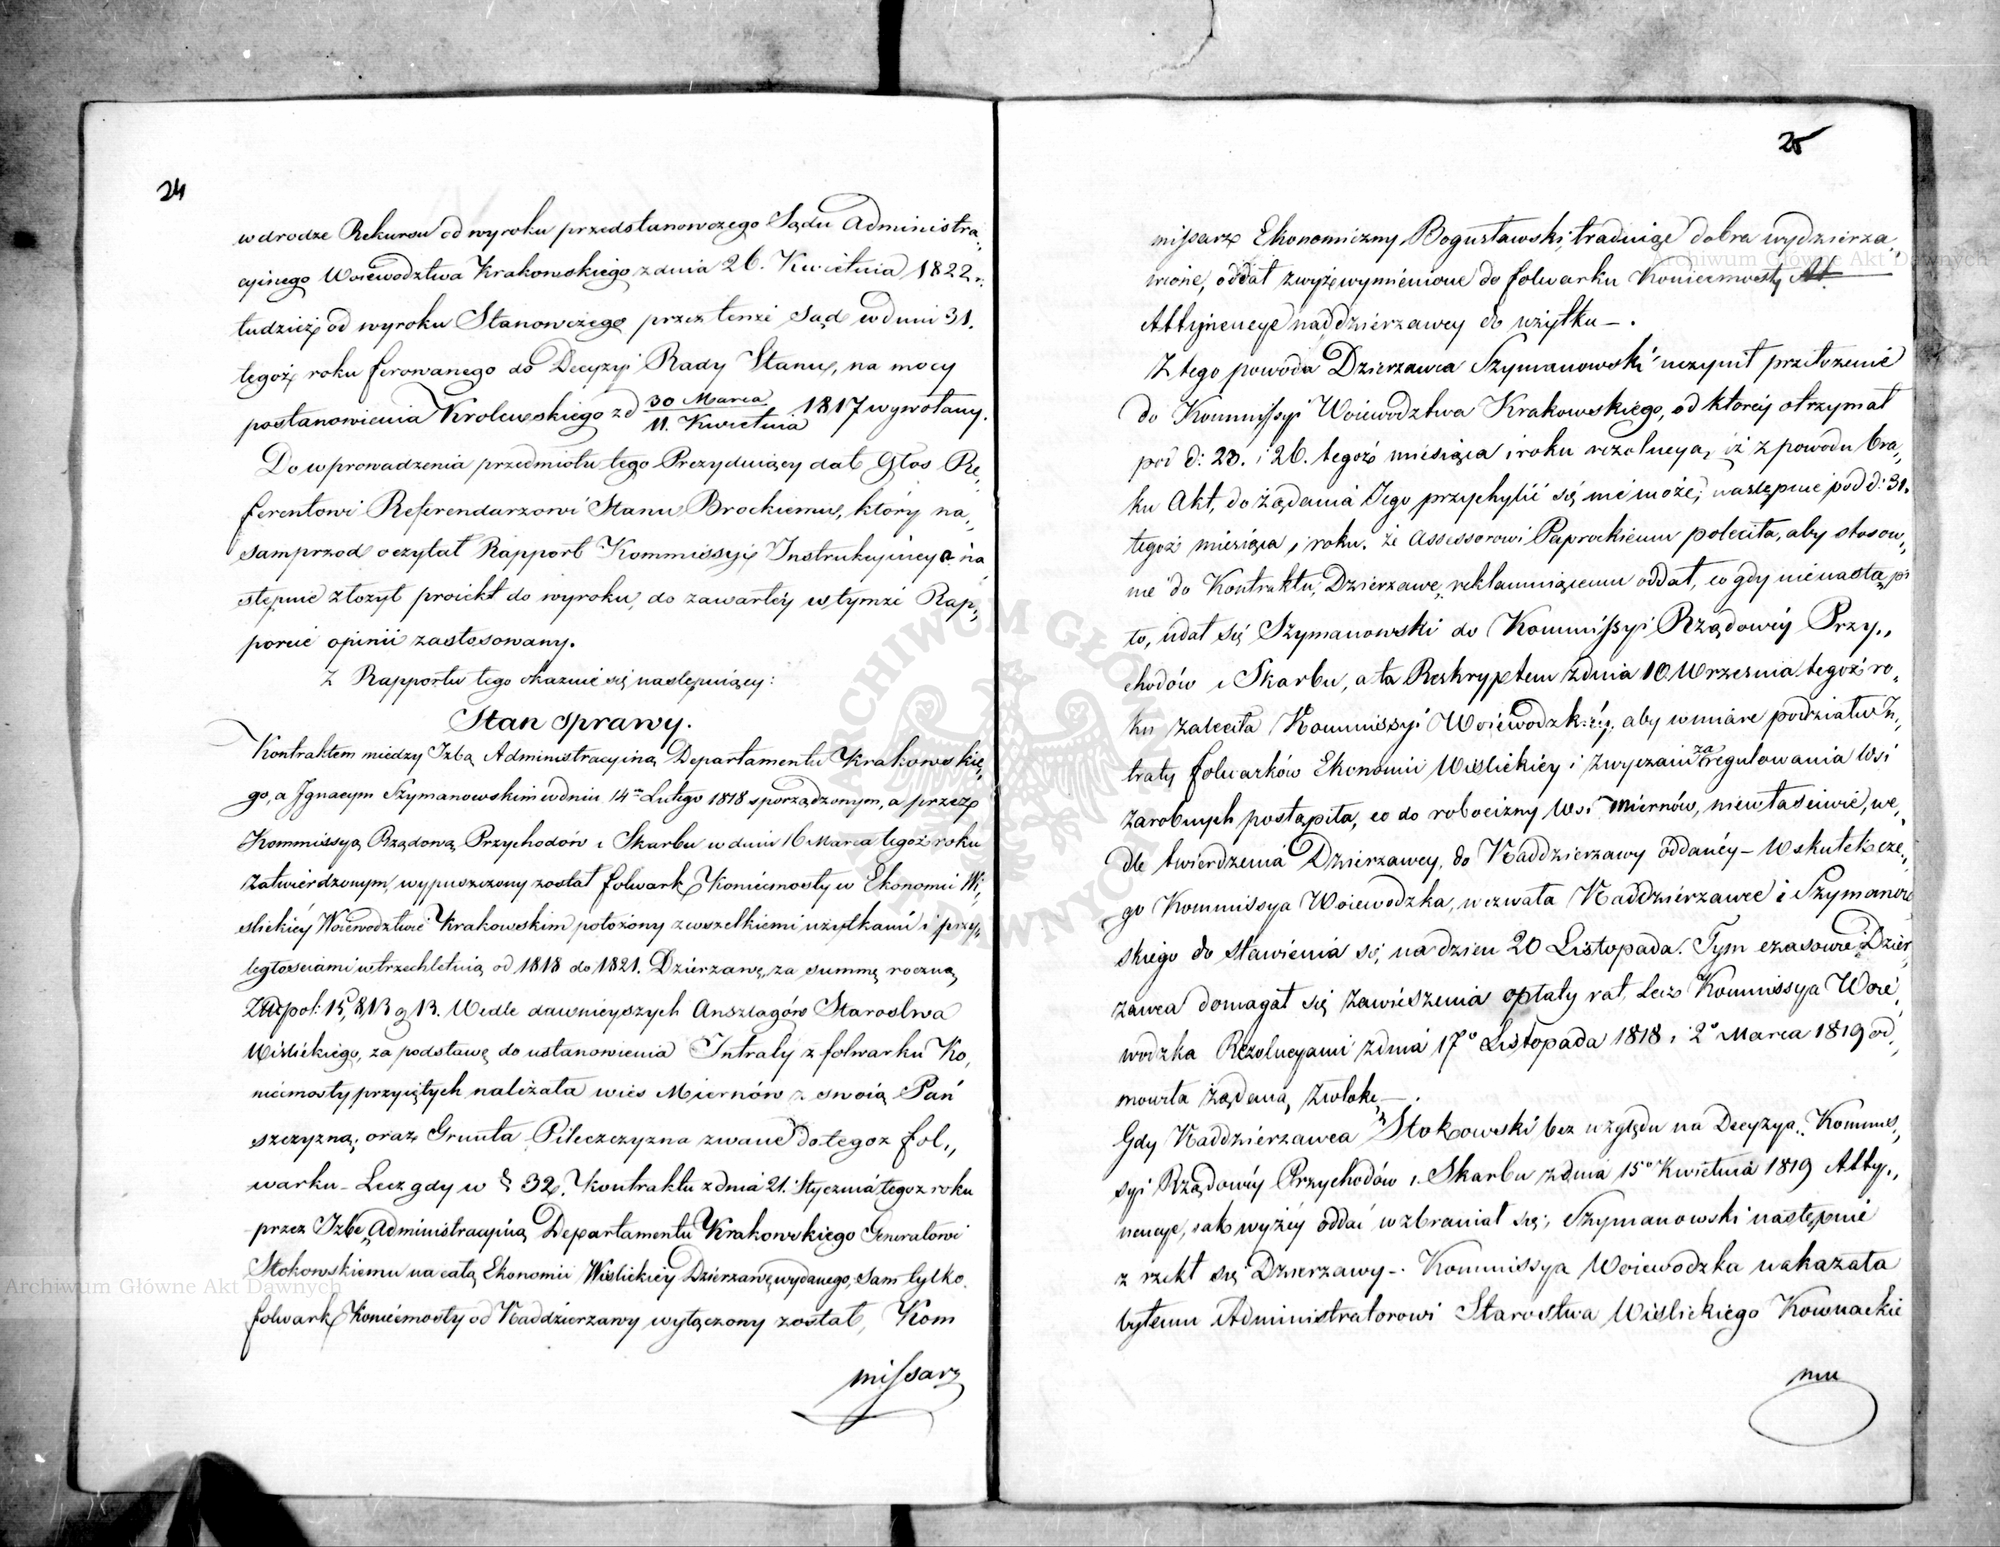 24
w drodze Rekursu od wyroku przedstanowczego Sądu Administra„
cyinego Woiewodztwa Krakowskiego z dnia 26. Kwietnia 1822 r.
tudzież od wyroku Stanowczego przez tenże Sąd w dniu 31.
tegoż roku ferowanego do Decyzyi Rady Stanu, na mocy
postanowienia Krolewskiego z d 30 Marca / 11. Kwietnia 1817 wywołany.
Do wprowadzenia przedmiotu tego Prezyduiący dał Głos Re„
ferentowi Referendarzowi Stanu Brockiemu, który na„
samprzod oczytał Rapport Kommissyi Instrukcyiney a na
stępnie złożył proiekt do wyroku, do zawartéy w tymże Rap„
porcie opinii zastosowany.
Z Rapportu tego okazuie się następuiący:
Stan sprawy.
Kontraktem miedzy Izbą Administracyiną Departamentu Krakowskie„
go, a Ignacym Szymanowskim w dniu 14 Lutego 1818 sporządzonym, a przez
Kommissyą Rządową Przychodów i Skarbu w dniu 16 Marca tegoż roku
zatwierdzonym, wypuszczony został folwark Koniecmosty w Ekonomii Wi„
slickiéy Woiewodztwie Krakowskim położony z wszelkiemi użytkami i przy„
ległosciami w trzechletnią od 1818 do 1821. Dzierzawę, za summę roczną
Złpol: 15,813 g 13. Wedle dawnieyszych Anszlagów Starostwa
Wislickiego, za podstawę do ustanowienia Intraty z folwarku Ko„
niecmosty przyiętych należała wies Miernów z swoią Pań
szczyzną, oraz Grunta Pileczczyzna zwane do tegoz fol„
warku – Lecz gdy w § 32. Kontraktu z dnia 21. Stycznia tegoz roku
przez Izbę Administracyiną Departamentu Krakowskiego Generałowi
Stokowskiemu na całą Ekonomii Wislickiéy Dzierzawę wydanego, sam tylko
folwark Koniecmosty od Naddzierzawy wyłączony został, Kom
missarz
25
missarz Ekonomiczny Bogusławski, traduiąc dobra wydzierza„
wione, oddał zwyżwymienione do folwarku Koniecmosty At
Attynencye naddzierzawcy do użytku –.
Z tego powodu Dzierzawca Szymanowski uczynił przełożenie
do Kommissyi Woiewodztwa Krakowskiego, od ktoréy otrzymał
pod d: 23. i 26. tegoż miesiąca i roku rezolucyą, iż z powodu bra„
ku Akt, do żądania Jego przychylić się nie może, następnie pod d: 31.
tegoż miesiąca i roku. że Assessorowi Paprockiemu poleciła, aby stosow„
nie do Kontraktu, Dzierzawę reklamuiącemu oddał, co gdy nie nastąpi
ło, udał się Szymanowski do Kommissyi Rządowéy Przy„
chodów i Skarbu, a ta Reskryptem z dnia 10. Wrzesnia tegoż ro„
ku zaleciła Kommissyi Woiewodzkiéy, aby w miarę podziału In„
traty folwarków Ekonomii Wislickiéy i zwyczaiu zaregulowania Wsi
zarobnych postąpiła, co do robocizny Wsi Miernów, niewłasciwie, we„
dle twierdzenia Dzierzawcy, do Naddzierzawy oddanéy – W skutek cze„
go Kommissya Woiewodzka, wezwała Naddzierzawcę i Szymanow
skiego do stawienia się, na dzien 20 Listopada. Tym czasowie Dzier„
zawca domagał się zawieszenia opłaty rat, lecz Kommissya Woie„
wodzka Rezolucyami z dnia 17º Listopada 1818 i 2º Marca 1819 od„
mowiła żądaną, zwłokę –.
Gdy Naddzierzawca Stokowski bez względu na Decyzyą Kommis„
syi Rządowéy Przychodów i Skarbu z dnia 15º Kwietnia 1819 Atty„
nencye, iak wyżéy oddać wzbraniał się, Szymanowski następnie
zrzekł się Dzierzawy –. Kommissya Woiewodzka nakazała
byłemu Administratorowi Starostwa Wislickiego Kownackie
mu
Archiwum Główne Akt Dawnych
Archiwum Główne Akt Dawnych
ARCHIWUM GŁÓWNE AKT DAWNYCH